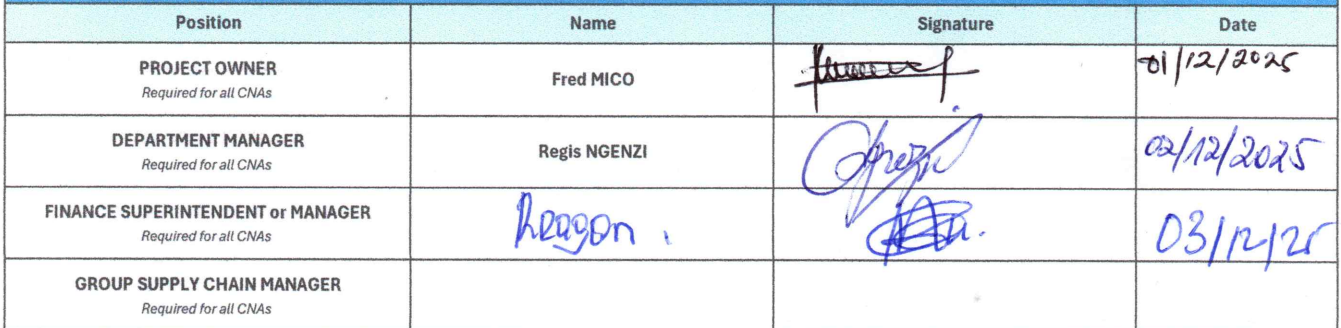 Position Name Signature Date
PROJECT OWNER
Required for all CNAs
Fred MICO 01/12/2025
DEPARTMENT MANAGER
Required for all CNAs
Regis NGENZI 02/12/2025
FINANCE SUPERINTENDENT or MANAGER
Required for all CNAs
Reagon. 03/12/25
GROUP SUPPLY CHAIN MANAGER
Required for all CNAs